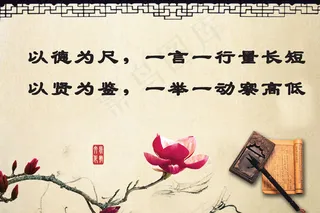 以德为尺，一言一行量长短
以贤为鉴，一举一动察高低